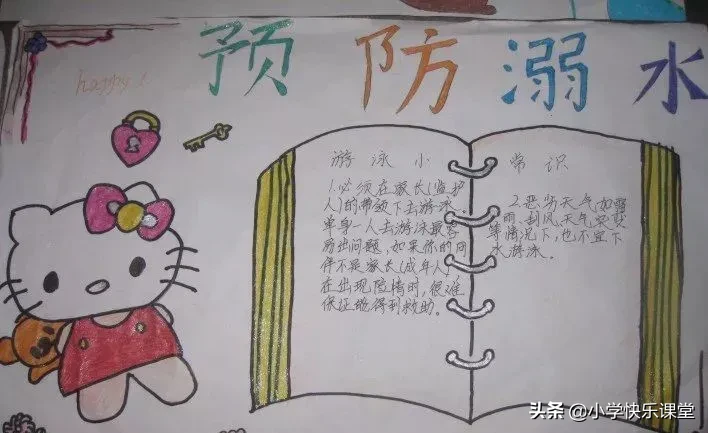 预防溺水
happy!
游泳小常识
1.必须在家长(监护
人)的带领下去游泳。
单身一人去游泳最容
易出问题,如果你的同
伴不是家长(成年人)
在出现险情时,很难
保证能得到救助。
2.恶劣天气如雷
雨、刮风、天气突变
等情况下,也不宜下
水游泳。
头条@小学快乐课堂